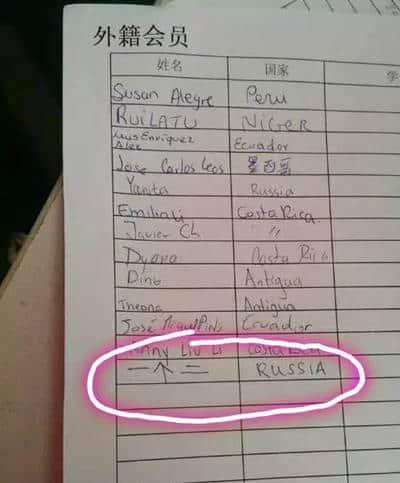 外籍会员
姓名 国家 学
Susan Alegre Peru
RUILATU NiGER
Luis Enriquez Ecuador
Alex
Jose Carlos Leos 墨西哥
Yanita Russia
Emilia Li Costa Rica.
Javier Ch "
Dyono Costa Rica
Dino Antigua
Theona Antigua
José Ecuador
LIU LI Costa Rica
一个二 RUSSIA